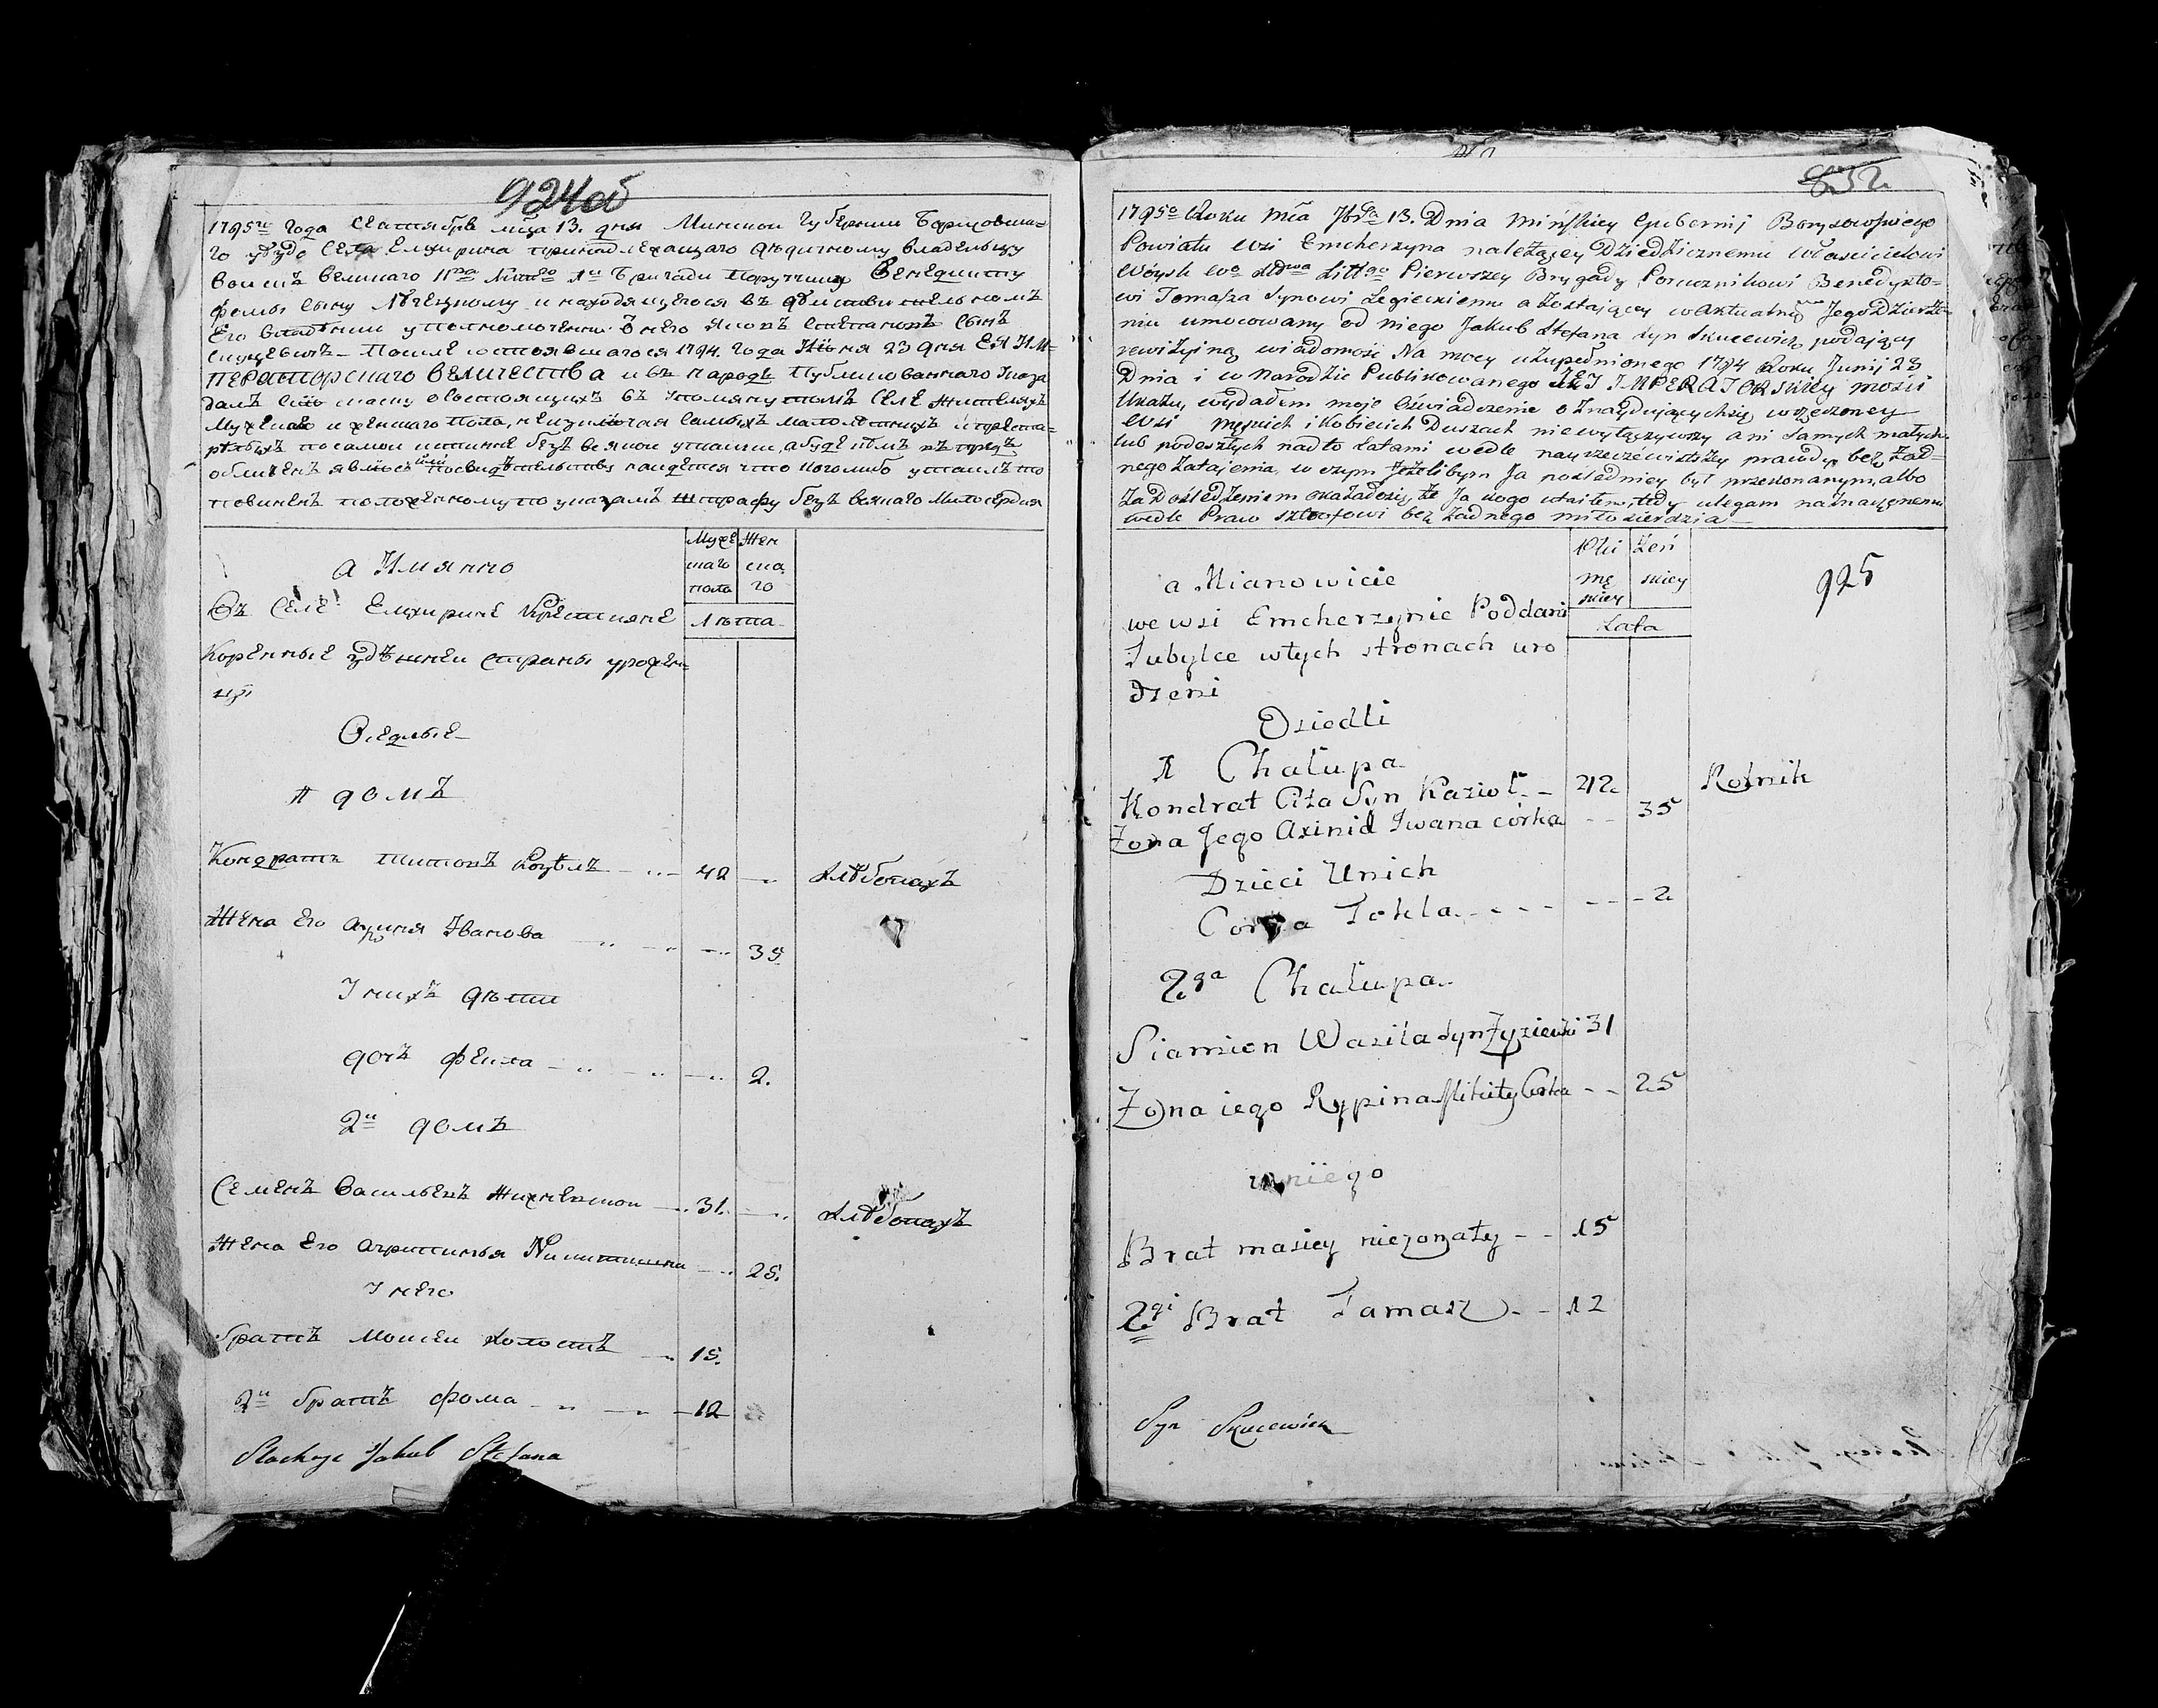 924 об
1795го года Сентября мца 13. дня Минской Губернии Борисовска-
го уезда Села Емхирина принадлежащаго дедичному владельцу
Войскъ Великаго Лито 1й Бригады Поручику Бенедикту
фомы сыну и находящегося въ действительномъ
Его владении уполномоченны Яковъ Степановъ Сынъ
Скуцевичъ После состоявшагося 1794. года Июня 23 дня ЕЯ ИМ-
ПЕРАТОРСКАГО ВЕЛИЧЕСТВА и въ народе Публикованнаго Указа
даю сию скаску о състоящихъ въ упомянутомъ Селе жителяхъ
Мужеска и женскаго Пола, неизключая самыхъ малолетныхъ и преста-
релыхъ по самой истинне безъ всякой утайки, а буде
обличенъ явлюсь или посвидетельству найдется что коголибо утаилъ то
повиненъ положенному по указамъ штрафу безъ всякаго Милосердия
а Имянно
Муже Жен
скаго ска
пола го
Въ Селе Емхирине Крестьяне
Лета
Коренные здешней стороны урожен-
цы
Оседлые
1 домъ
Кондратъ Титовъ Козелъ 42 хлебопахъ
Жена Его Аксиня Иванова 35
У нихъ дети
дочь фекла 2.
2й домъ
Семенъ Васильевъ 31. хлебопахъ
Жена Его Агрипинья Никитична 25.
У него
братъ Мойсей холостъ 15.
2й братъ фома 12
Jakub Stefana
852
1795o Roku Mca 7bra 13. Dnia Mińskiey Gubernij Borysowskiego
Powiatu wsi Emcherzyna należącey Dziedzicznemu Właścicielowi
Woysk Littgo Pierwszey Brygady Porucznikowi Benedykto-
wi Tomasza Synowi a zostającey w aktualnym Jego Dzierże-
niu umocowany od niego Jakub Stefana syn Skucewicz podający
rewizyiną wiadomość Na mocy uzupełnionego 1794 Roku Junij 23
Dnia i w Narodzie Publikowanego JEJ IMPERATORSKIEY Mości
Ukazu, wydałem moje Oświadczenie o znayduiących się w rzeczoney
Wsi męskich i Kobiecich Duszach niewyłączywszy ani samych małych
lub podeszłych nadto latami wedle nayrzeczewistszey prawdy bez żad-
nego zatajenia, w czym jeżelibym Ja pośledniey był przekonanym, albo
za dośledzeniem okazałosię, że Ja kogo utaiłem, tedy ulegam naznaczonemu
wedle Praw sztrofowi bez żadnego miłosierdzia
a Mianowicie
Płci żeń
mę skiey
skiey
Lata
925
we wsi Emcherzynie Poddani
Tubylce w tych stronach uro
dzeni
Osiedli
1 Chałupa
Kondrat Cita Syn Kazioł 42 Rolnik
Żona Jego Axinia Iwana córka 35
Dzieci Unich
Corka Tekla 2
2ga Chałupa
Siamion Wasila syn 31
Żona iego Rypina Mikity Corka 25
u niego
Brat masiey nieżonaty 15
2gi Brat Tamasz 12
Syn Skucewicz